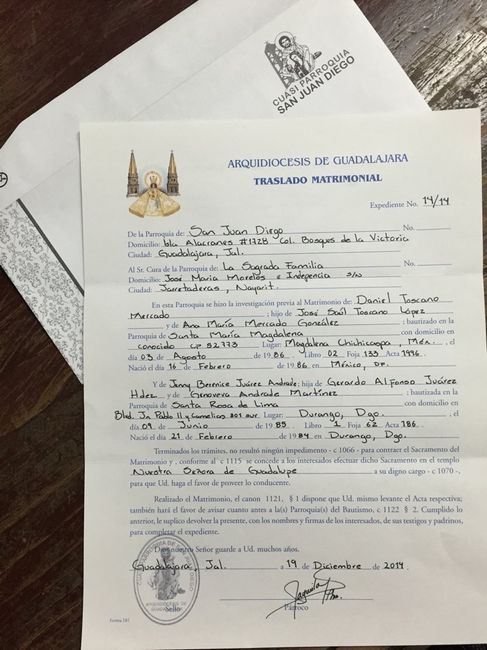 CUASI PARROQUIA
SAN JUAN DIEGO
ARQUIDIOCESIS DE GUADALAJARA
TRASLADO MATRIMONIAL
Expediente No. 14/14
De la Parroquia de: San Juan Diego No.
Domicilio: bla Alacranes #1728 Col. Bosques de la Victoria
Ciudad: Guadalajara, Jal.
Al Sr. Cura de la Parroquia de: La Sagrada Familia No.
Domicilio: José María Morelos e Indepencia s/n
Ciudad: Jarretaderas, Nayarit.
En esta Parroquia se hizo la investigación previa al Matrimonio de: Daniel Toscano
Mercado ; hijo de José Saúl Toscano López
y de Ana María Mercado González ; bautizado en la
Parroquia de Santa María Magdalena con domicilio en
conocido CP 52773 Lugar: Magdalena Chichicaspa, Méx. , el
día 03 de Agosto de 1986 Libro 02 Foja 133 Acta 1996
Nació el día 16 de Febrero de 1986 en México, DF.
Y de Jenny Berenice Juárez Andrade; hija de Gerardo Alfonso Juárez
Hdez y Genoveva Andrade Martínez ; bautizada en la
Parroquia de Santa Rosa de Lima con domicilio en
Blvd. Jn Pablo II y Camelias 301 sur Lugar: Durango, Dgo. , el
día 09 de Junio de 1985 Libro 1 Foja 62 Acta 186
Nació el día 21 de Febrero de 1984 en Durango, Dgo.
Terminados los trámites, no resultó ningún impedimento - c 1066 - para contraer el Sacramento del
Matrimonio y , conforme al c 1115 se concede a los interesados efectuar dicho Sacramento en el templo
Nuestra Señora de Guadalupe a su digno cargo - c 1070 -,
para que Ud. haga el favor de proveer lo conducente.
Realizado el Matrimonio, el canon 1121, § 1 dispone que Ud. mismo levante el Acta respectiva;
también hará el favor de avisar cuanto antes a la(s) Parroquia(s) del Bautismo, c 1122 § 2. Cumplido lo
anterior, le suplico devolver la presente, con los nombres y firmas de los interesados, de sus testigos y padrinos,
para completar el expediente.
Dios nuestro Señor guarde a Ud. muchos años.
Guadalajara, Jal. a 19 de Diciembre de 2014.
Sello
Párroco
Forma 181